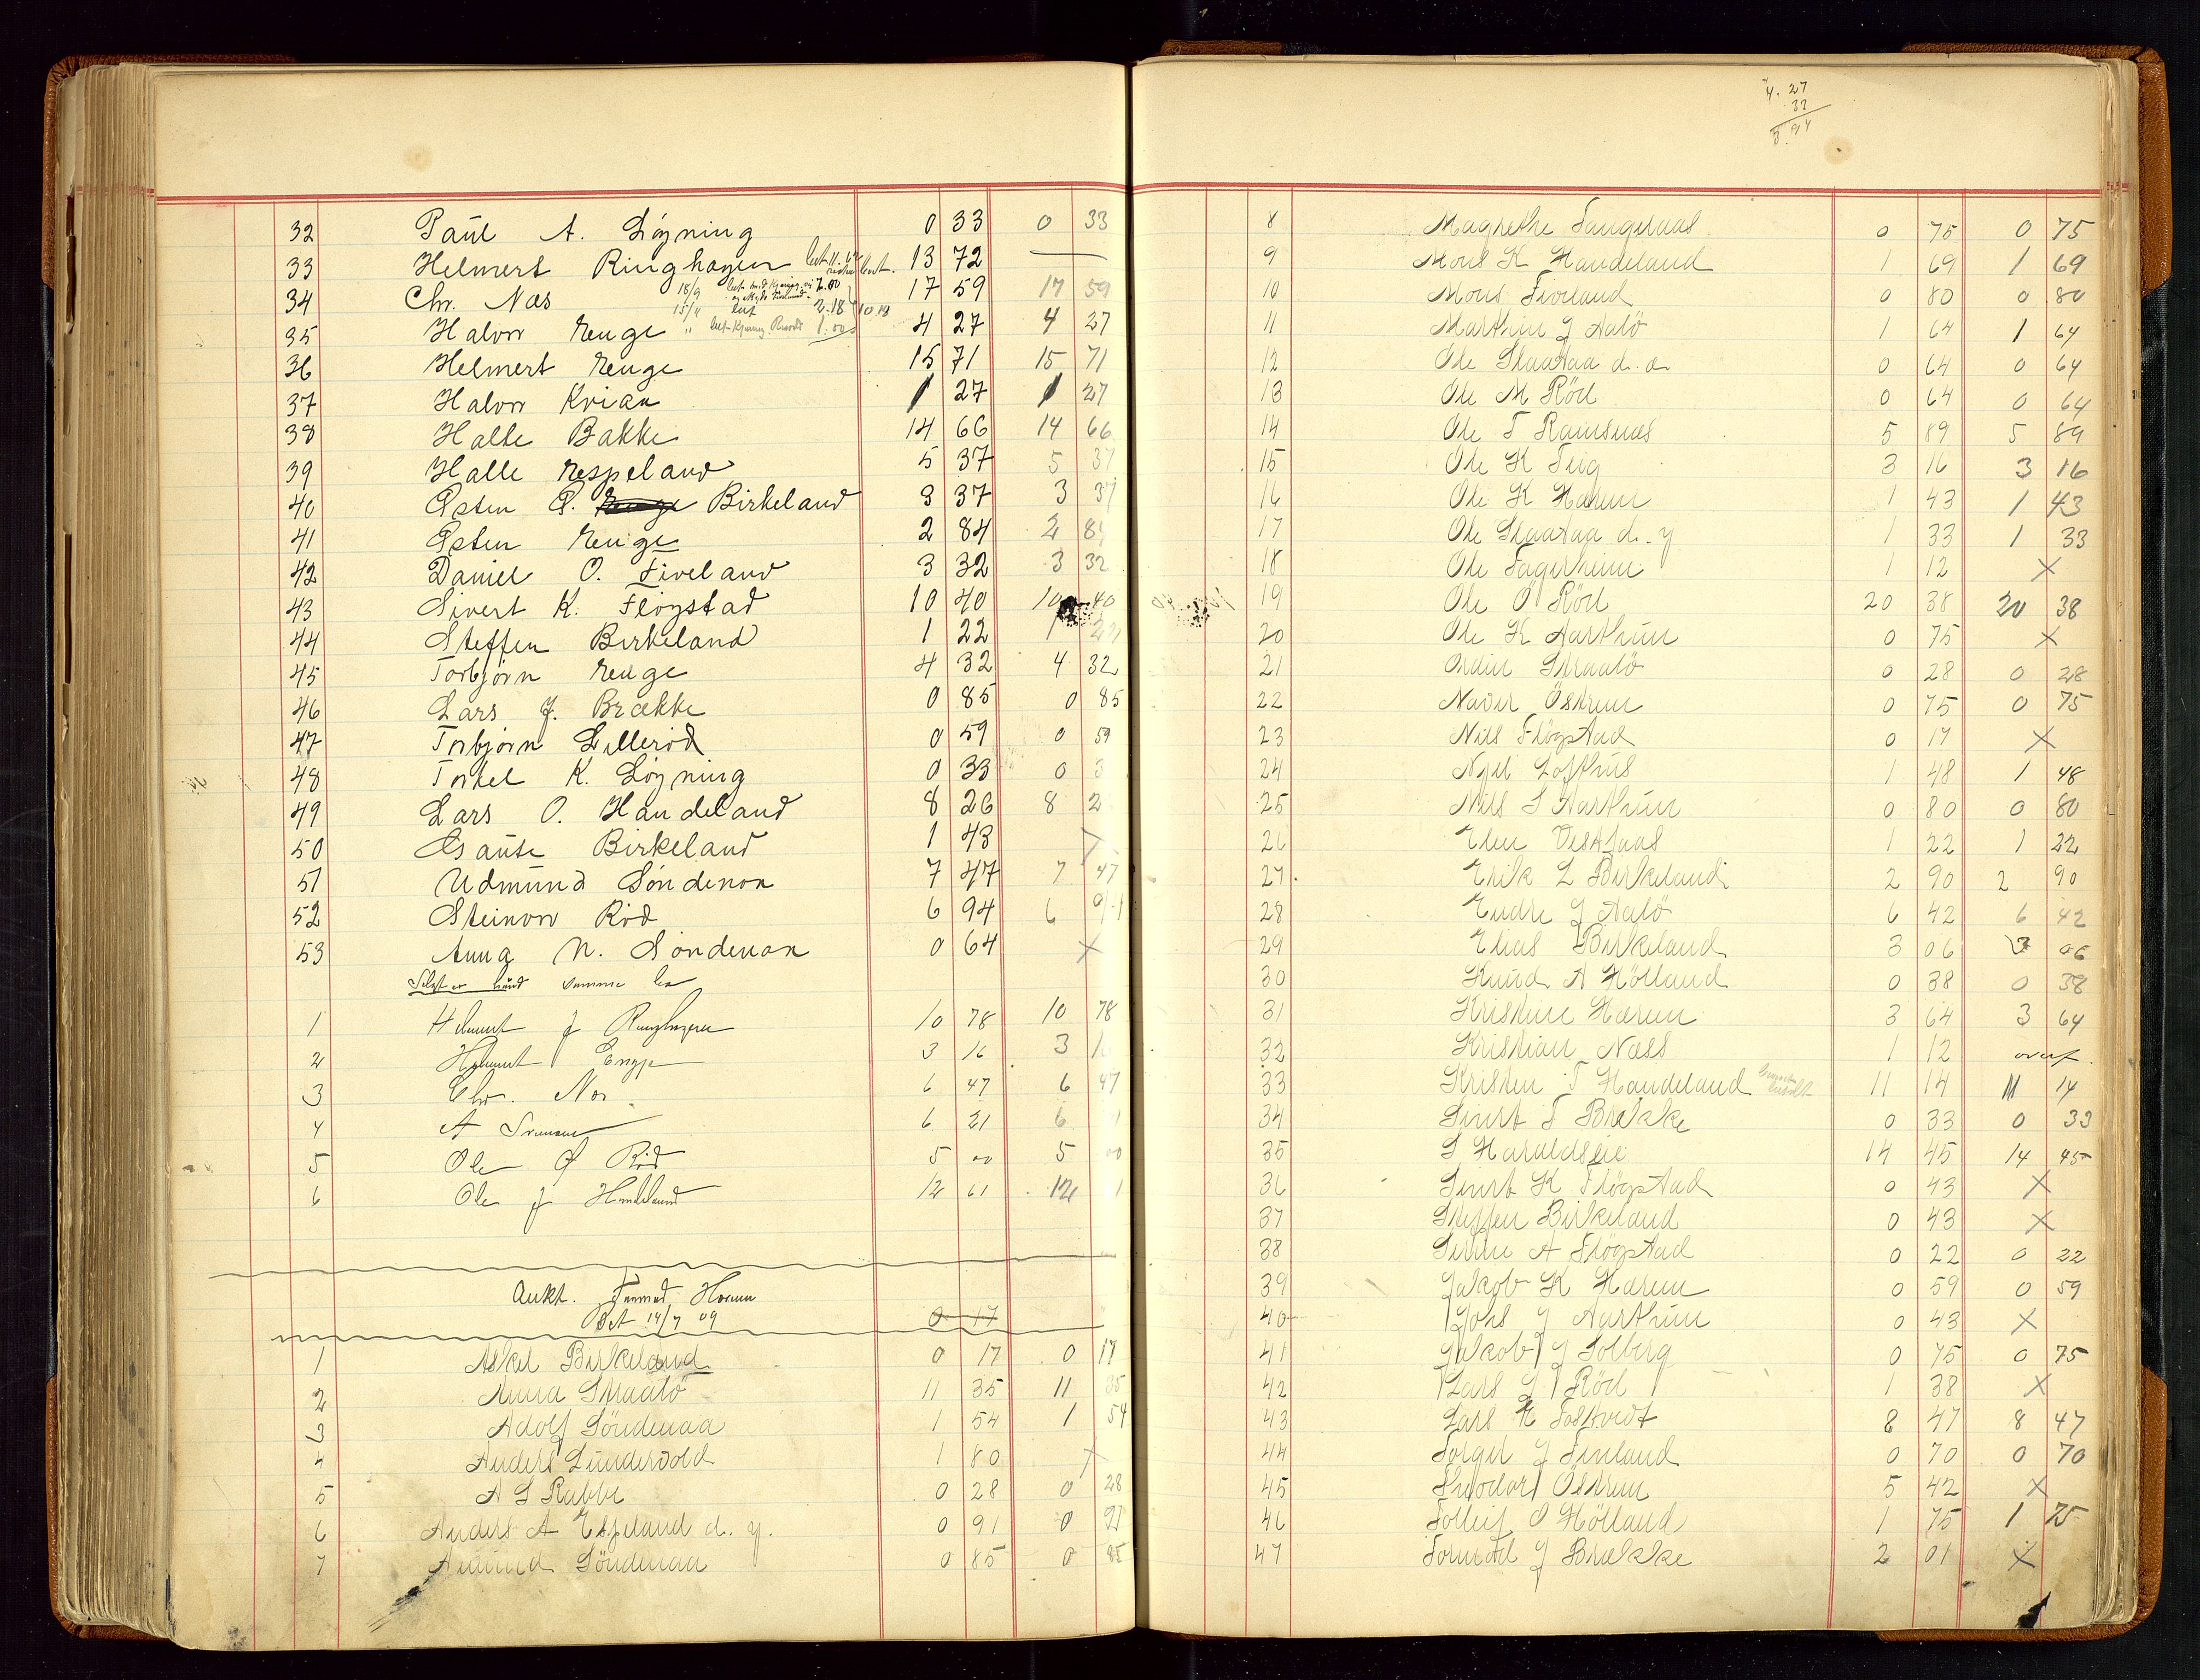 32 Paul A. Löyning 0 33 0 33
33 Helmert Ringhagen 13 72
34 Chr. Næs 17 59 17 59
35 Halvor Enge 4 27 4 27
36 Helmert Enge 15 71 15 71
37 Halvor Kvian 1 27 1 27
38 Halle Bakke 14 66 14 66
39 Halle Espeland 5 37 5 37
40 Østen Birkeland 3 37 3 37
41 Østen Enge 2 84 2 84
42 Daniel O. Fiveland 3 32 3 32
43 Sivert K. Flögstad 10 40 10 40
44 Steffen Birkeland 1 22 1 22
45 Torbjörn Enge 4 32 4 32
46 Lars J. Brække 0 85 0 85
47 Torbjörn Lilleröd 0 59 0 59
48 Torkel K. Löyning 0 33 0 3
49 Lars O. Handeland 8 26 8 2
50 Gaute Birkeland 1 43 X
51 Udmund Söndenaa 7 47 7 47
52 Steinar Röd 6 94 6 94
53 Anna N. Söndenaa 0 64 X
1 Helmert J Ringhagen 10 78 10 78
2 Helmert Enge 3 16 3 1
3 Chr. Næs 6 47 6 47
4 A 6 21 6 1
5 Ole Ø Röd 5 00 5 00
6 Ole J Handeland 12 61 12 1
Aukt. Tormod Hærem
Bet 14/7 09 0 17
1 Askel Birkeland 0 17 0 17
2 Anna Straalö 11 35 11 35
3 Adolf Söndenaa 1 54 1 54
4 Anders Lundevold 1 80 X
5 A S Rabbe 0 28 0 28
6 Anders A Espeland d. y. 0 91 0 91
7 Amund Söndenaa 0 85 0 85
4.27
33
8 Magrethe Tangeraas 0 75 0 75
9 Mons K Handeland 1 69 1 69
10 Mons Fiveland 0 80 0 80
11 Martin J Aalö 1 64 1 64
12 Ole Slaataa d. e. 0 64 0 64
13 Ole M Röd 0 64 0 64
14 Ole T Ramsnæs 5 89 5 89
15 Ole K Teig 3 16 3 16
16 Ole K Hærem 1 43 1 43
17 Ole Slaataa d. y 1 33 1 33
18 Ole Fagerheim 1 12 X
19 Ole Ö Röd 20 38 20 38
20 Ole K Aarthun 0 75 X
21 Odin Straalö 0 28 0 28
22 Östrem 0 75 0 75
23 Nils Flögstad 0 17 X
24 Lofthus 1 48 1 48
25 Nils S Aarthun 0 80 0 80
26 Elen Vestaas 1 22 1 22
27 Erik L Birkeland 2 90 2 90
28 Endre J Aalö 6 42 6 42
29 Elias Birkeland 3 06 3 06
30 Knud A Hölland 0 38 0 38
31 Kristine Hærem 3 64 3 64
32 Kristian Næss 1 12 overf.
33 Kristen T Handeland 11 14 11 14
34 Sivert T Brekke 0 33 0 33
35 S Haraldseie 14 45 14 45
36 Sivert K Flögstad 0 43 X
37 Steffen Birkeland 0 43 X
38 A Flögstad 0 22 0 22
39 Jakob K Hærem 0 59 0 59
40 J Aarthun 0 43 X
41 Jakob J Solberg 0 75 0 75
42 Lars J Röd 1 38 X
43 Lars K Tostvedt 8 47 8 47
44 Torger J Finland 0 70 0 70
45 Theodor Östrem 5 42 X
46 Tolleif O Hölland 1 75 1 75
47 Tormod J Brekke 2 01 X